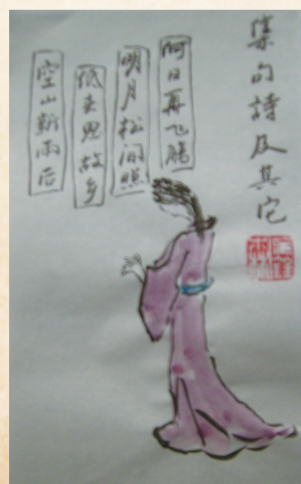 集句詩及其它
何日再飞腾
明月松间照
低头思故乡
空山新雨后